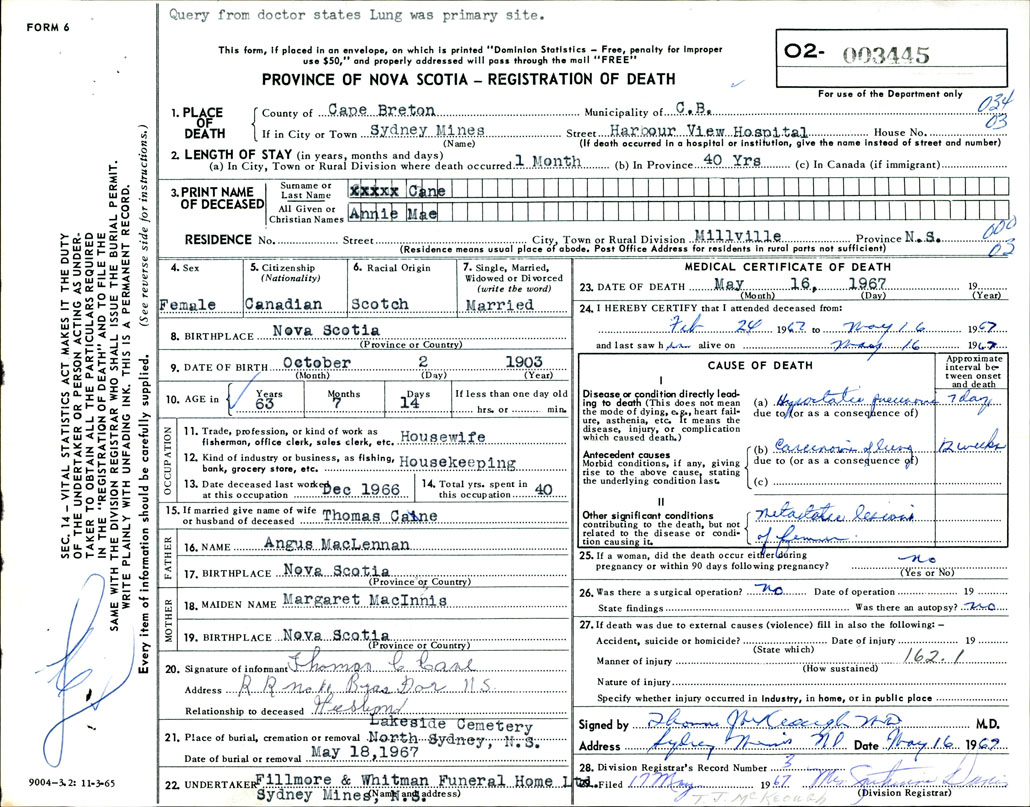 Query from doctor states Lung was primary site.
FORM 6
This form, if placed in an envelope, on which is printed "Dominion Statistics – Free, penalty for improper
use $50," and properly addressed will pass through the mail "FREE"
PROVINCE OF NOVA SCOTIA – REGISTRATION OF DEATH
O2- 003445
For use of the Department only
034
03
1. PLACE OF DEATH
County of Cape Breton Municipality of C.B.
If in City or Town Sydney Mines Street Harbour View Hospital House No.
(Name) (If death occurred in a hospital or institution, give the name instead of street and number)
2. LENGTH OF STAY (in years, months and days)
(a) In City, Town or Rural Division where death occurred 1 Month (b) In Province 40 Yrs (c) In Canada (if immigrant)
3. PRINT NAME OF DECEASED
Surname or Last Name xxxxx Cane
All Given or Christian Names Annie Mae
000
03
RESIDENCE No. Street City, Town or Rural Division Millville Province N.S.
(Residence means usual place of abode. Post Office Address for residents in rural parts not sufficient)
SEC. 14 – VITAL STATISTICS ACT MAKES IT THE DUTY
OF THE UNDERTAKER OR PERSON ACTING AS UNDER-
TAKER TO OBTAIN ALL THE PARTICULARS REQUIRED
IN THE "REGISTRATION OF DEATH" AND TO FILE THE
SAME WITH THE DIVISION REGISTRAR WHO SHALL ISSUE THE BURIAL PERMIT.
WRITE PLAINLY WITH UNFADING INK. THIS IS A PERMANENT RECORD.
Every item of information should be carefully supplied. (See reverse side for instructions.)
4. Sex
Female
5. Citizenship
(Nationality)
Canadian
6. Racial Origin
Scotch
7. Single, Married,
Widowed or Divorced
(write the word)
Married
8. BIRTHPLACE Nova Scotia
(Province or Country)
9. DATE OF BIRTH October 2 1903
(Month) (Day) (Year)
10. AGE in Years Months Days If less than one day old
63 7 14 hrs. or min.
OCCUPATION
11. Trade, profession, or kind of work as
fisherman, office clerk, sales clerk, etc. Housewife
12. Kind of industry or business, as fishing,
bank, grocery store, etc. Housekeeping
13. Date deceased last worked
at this occupation Dec 1966
14. Total yrs. spent in
this occupation 40
15. If married give name of wife
or husband of deceased Thomas Caine
FATHER
16. NAME Angus MacLennan
17. BIRTHPLACE Nova Scotia
(Province or Country)
MOTHER
18. MAIDEN NAME Margaret MacInnis
19. BIRTHPLACE Nova Scotia
(Province or Country)
20. Signature of informant Thomas C Cane
Address R R no Bras Dor N S
Relationship to deceased Husband
21. Place of burial, cremation or removal Lakeside Cemetery
North Sydney, N.S.
Date of burial or removal May 18,1967
22. UNDERTAKER Fillmore & Whitman Funeral Home Ltd.
Sydney Mines, N.S.
(Name and address)
9004-3.2: 11-3-65
MEDICAL CERTIFICATE OF DEATH
23. DATE OF DEATH May 16, 1967 19
(Month) (Day) (Year)
24. I HEREBY CERTIFY that I attended deceased from:
Feb 24 1967 to May 16 1967
and last saw h alive on May 16 1967
CAUSE OF DEATH
Approximate
interval be-
tween onset
and death
I
Disease or condition directly lead-
ing to death (This does not mean
the mode of dying, e.g., heart fail-
ure, asthenia, etc. It means the
disease, injury, or complication
which caused death.)
(a) Hypostatic pneumonia 7 day
due to (or as a consequence of)
Antecedent causes
Morbid conditions, if any, giving
rise to the above cause, stating
the underlying condition last.
(b) Carcinoma of lung 12 weeks
due to (or as a consequence of)
(c)
II
Other significant conditions
contributing to the death, but not
related to the disease or condi-
tion causing it.
Metastatic lesions
of femur
25. If a woman, did the death occur either during
pregnancy or within 90 days following pregnancy? no
(Yes or No)
26. Was there a surgical operation? no Date of operation 19
State findings Was there an autopsy? no
27. If death was due to external causes (violence) fill in also the following: –
Accident, suicide or homicide? Date of injury 19
(State which)
Manner of injury 162.1
(How sustained)
Nature of injury
Specify whether injury occurred in industry, in home, or in public place
Signed by Thomas J McKeough MD M.D.
Address Sydney Mines NS Date May 16 1967
28. Division Registrar's Record Number 3
Filed 17 May 1967
(Division Registrar)
T. J. McKeough